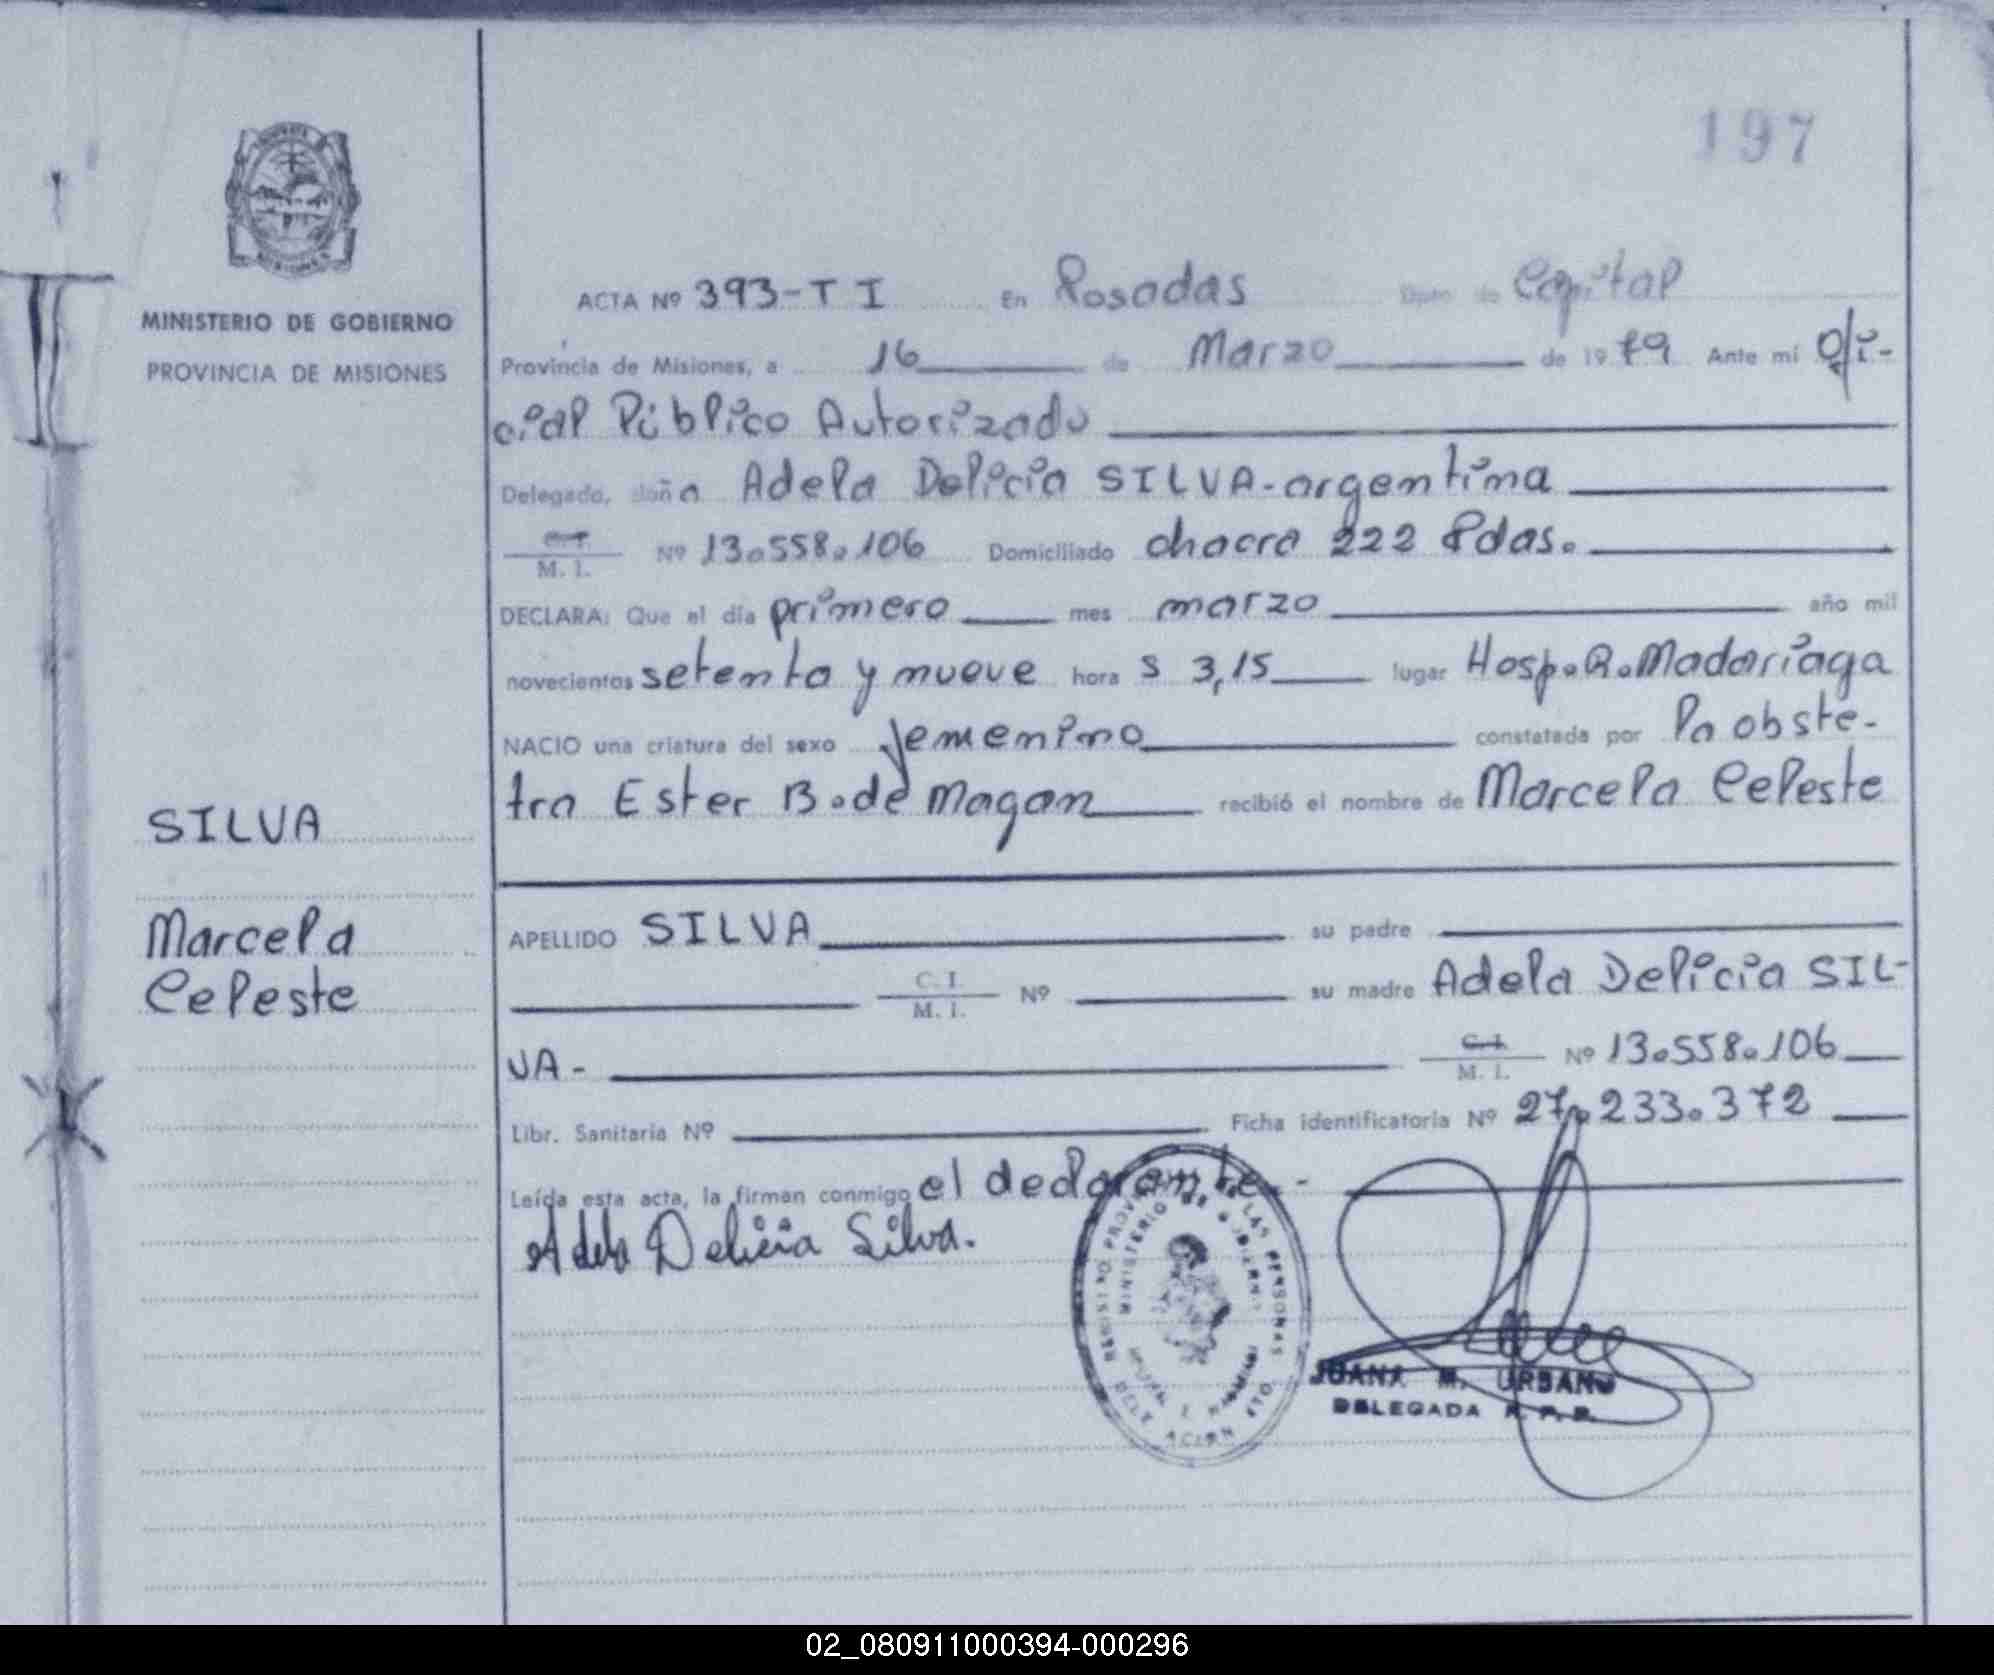 197
MINISTERIO DE GOBIERNO
PROVINCIA DE MISIONES
SILVA
Marcela
Celeste
ACTA Nº 393-T I En Posadas Dpto de Capital
Provincia de Misiones, a 16 de Marzo de 1979 Ante mi Ofi-
cial Público Autorizado
Delegado, doña Adela Delicia SILVA-argentina
C.I. M. I. Nº 13.558.106 Domiciliado chacra 222 Pdas.
DECLARA: Que el día primero mes marzo año mil
novecientos setenta y nueve hora s 3,15 lugar Hosp.R.Madariaga
NACIO una criatura del sexo femenino constatada por la obste-
tra Ester B.de Magan recibió el nombre de Marcela Celeste
APELLIDO SILVA su padre
C. I. M. I. Nº su madre Adela Delicia SIL-
VA- C.I. M. I. Nº 13.558.106
Libr. Sanitaria Nº Ficha identificatoria Nº 27.233.372
Leída esta acta, la firman conmigo el declarante.-
Adela Delicia Silva.
MINISTERIO DE GOBIERNO
LAS PERSONAS
JUANA M. URBANO
DELEGADA R. P. P.
02_080911000394-000296